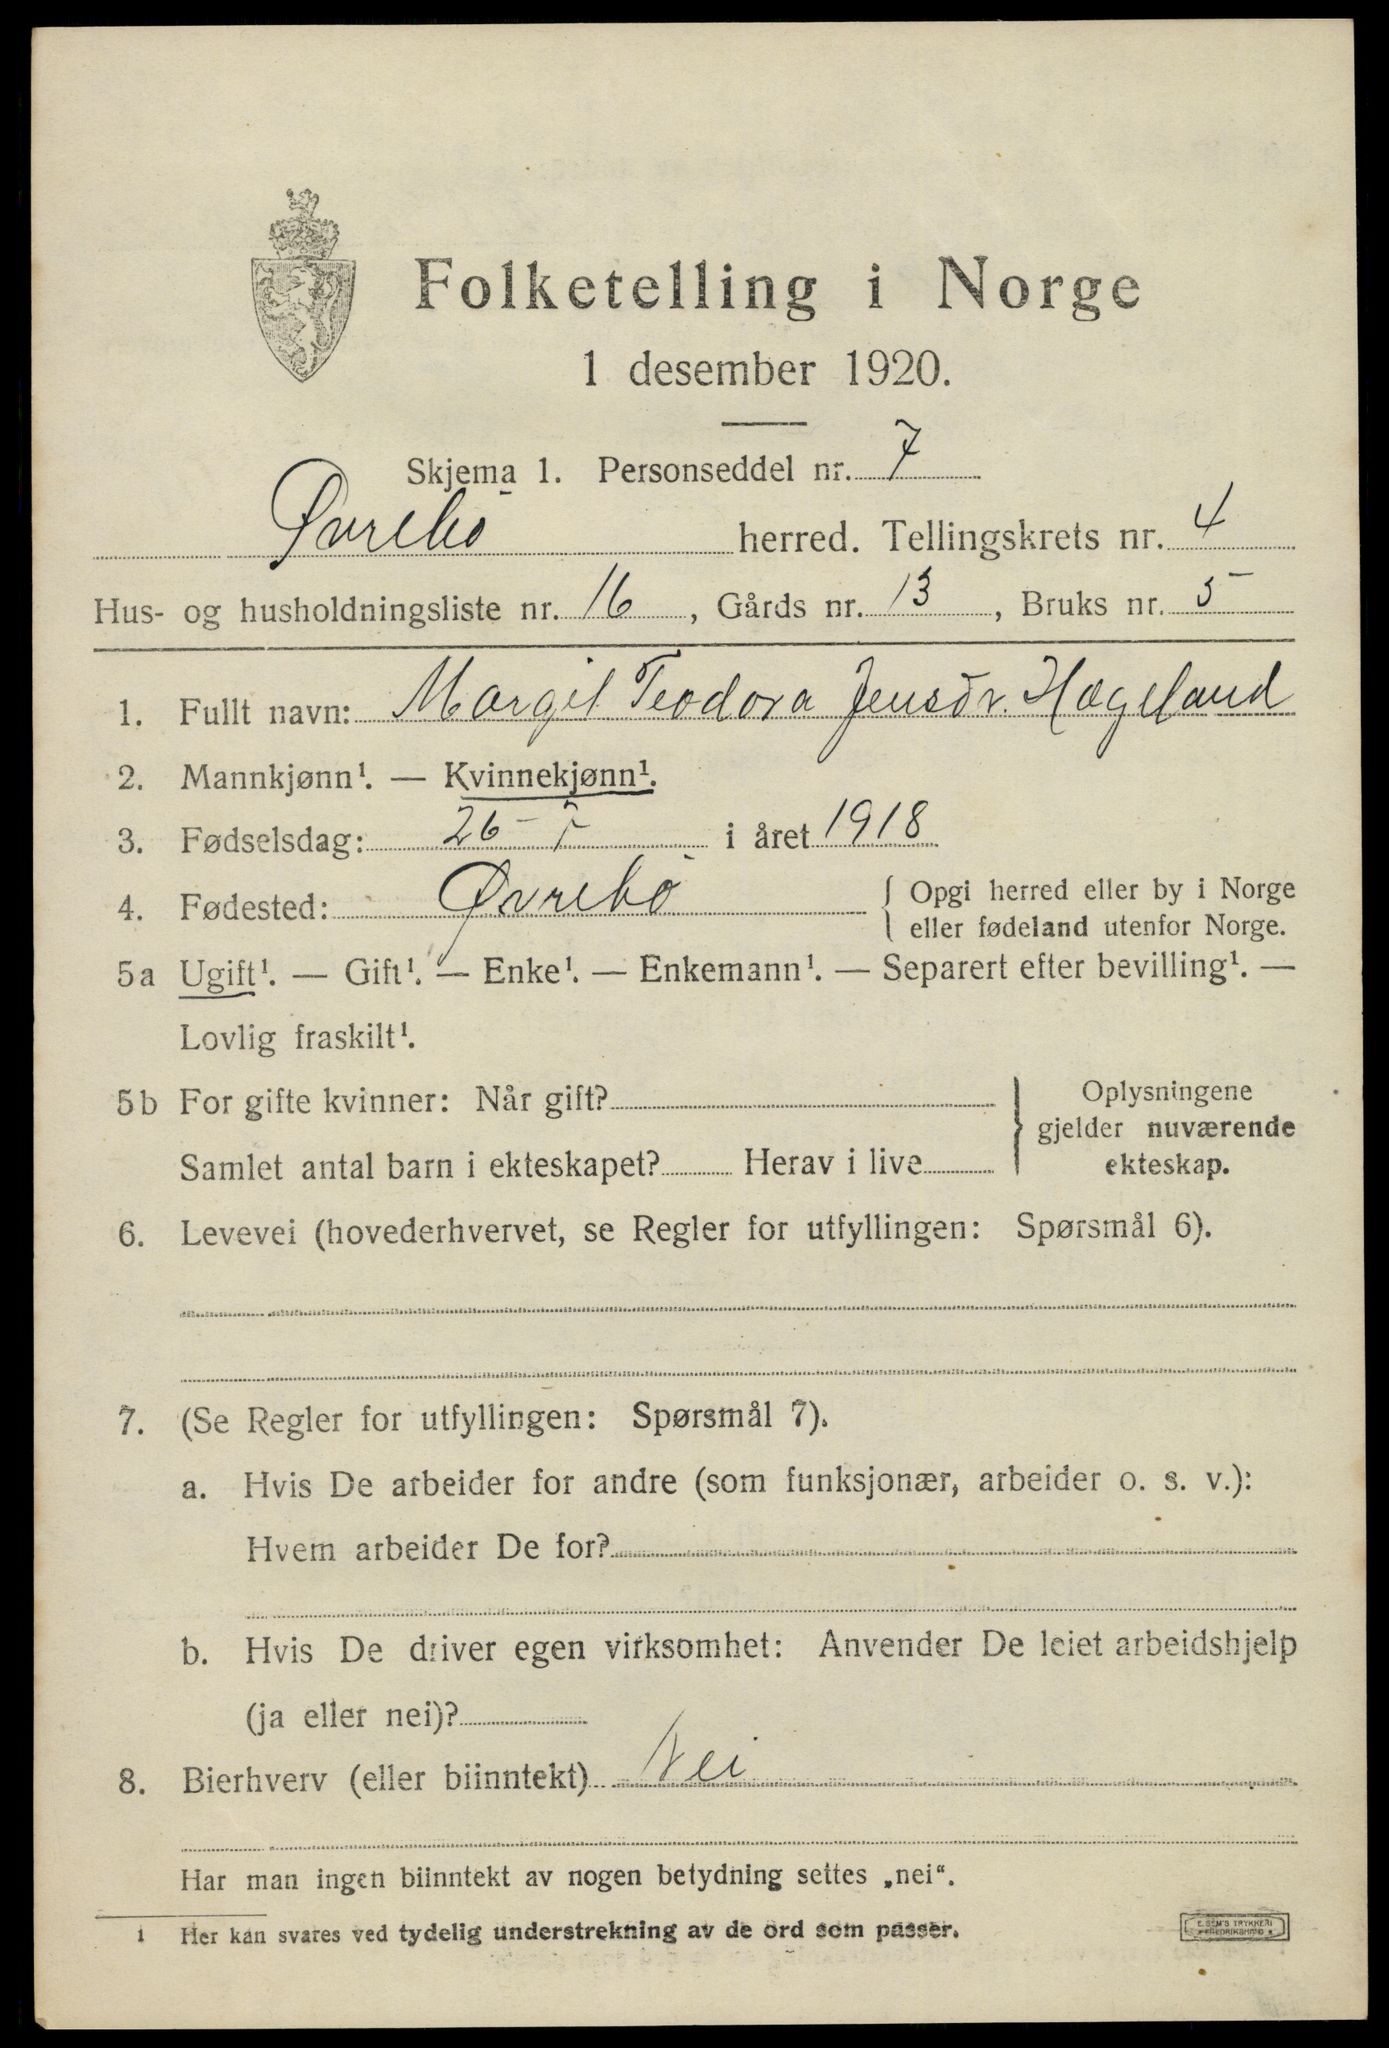 Folketelling i Norge
1 desember 1920.
Skjema 1. Personseddel nr. 7
Øvrebø herred. Tellingskrets nr. 4
Hus- og husholdningsliste nr. 16, Gårds nr. 13, Bruks nr. 5
1. Fullt navn: Margit Teodora Jensdr. Hægeland
2. Mannkjønn¹. — Kvinnekjønn¹.
3. Fødselsdag: 26 - i året 1918
4. Fødested: Øvrebø { Opgi herred eller by i Norge
eller fødeland utenfor Norge.
5a Ugift¹. — Gift¹. — Enke¹. — Enkemann¹. — Separert efter bevilling¹. —
Lovlig fraskilt¹.
5b For gifte kvinner: Når gift? } Oplysningene
gjelder nuværende
Samlet antal barn i ekteskapet? Herav i live ekteskap.
6. Levevei (hovederhvervet, se Regler for utfyllingen: Spørsmål 6).
7. (Se Regler for utfyllingen: Spørsmål 7).
a. Hvis De arbeider for andre (som funksjonær, arbeider o. s. v.):
Hvem arbeider De for?
b. Hvis De driver egen virksomhet: Anvender De leiet arbeidshjelp
(ja eller nei)?
8. Bierhverv (eller biinntekt) Nei
Har man ingen biinntekt av nogen betydning settes „nei“.
1 Her kan svares ved tydelig understrekning av de ord som passer.
E. SEM'S TRYKKERI
FREDRIKSHALD